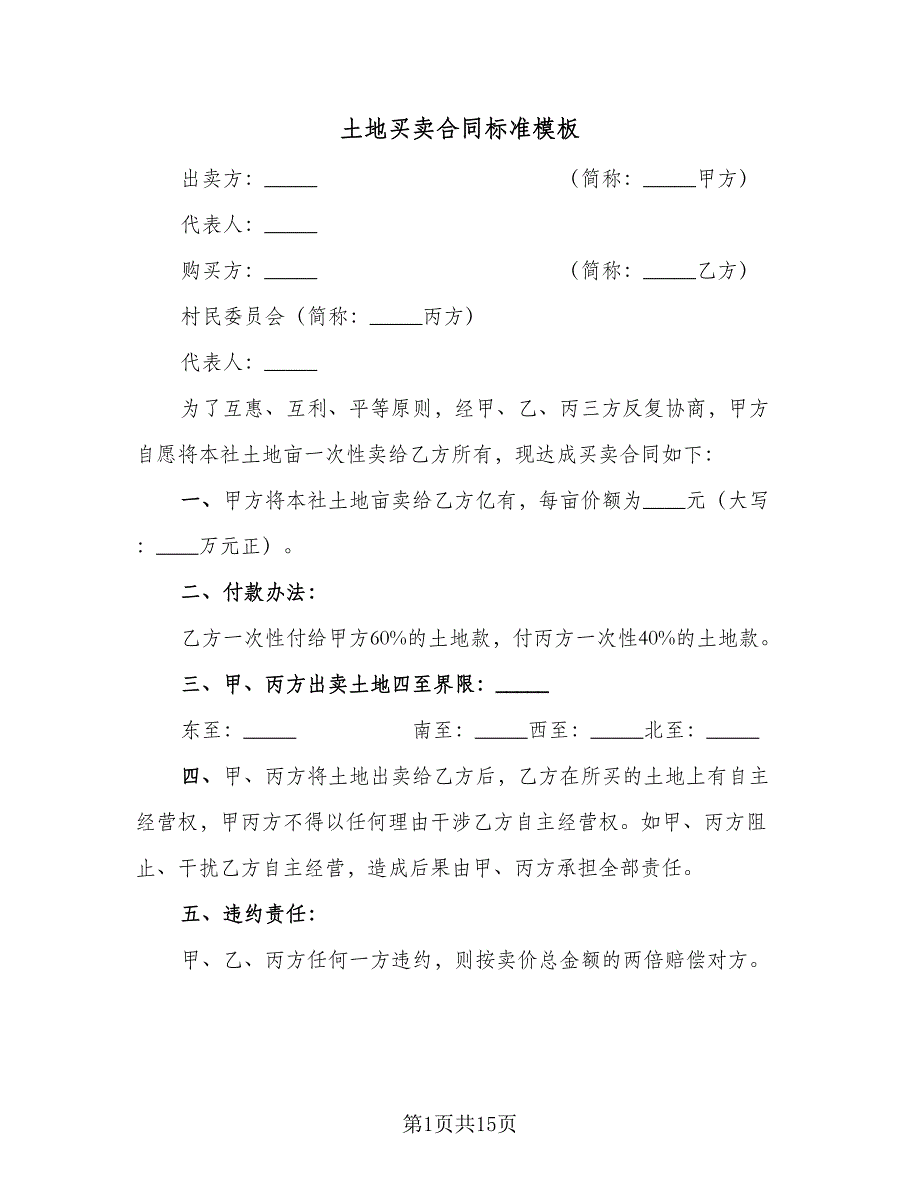 土地买卖合同标准模板
出卖方：_____ （简称：_____甲方）
代表人：_____
购买方：_____ （简称：_____乙方）
村民委员会（简称：_____丙方）
代表人：_____
为了互惠、互利、平等原则，经甲、乙、丙三方反复协商，甲方
自愿将本社土地亩一次性卖给乙方所有，现达成买卖合同如下：
一、甲方将本社土地亩卖给乙方亿有，每亩价额为____元（大写
：____万元正）。
二、付款办法：
乙方一次性付给甲方60%的土地款，付丙方一次性40%的土地款。
三、甲、丙方出卖土地四至界限：_____
东至：_____ 南至：_____西至：_____北至：_____
四、甲、丙方将土地出卖给乙方后，乙方在所买的土地上有自主
经营权，甲丙方不得以任何理由干涉乙方自主经营权。如甲、丙方阻
止、干扰乙方自主经营，造成后果由甲、丙方承担全部责任。
五、违约责任：
甲、乙、丙方任何一方违约，则按卖价总金额的两倍赔偿对方。
第1页共15页